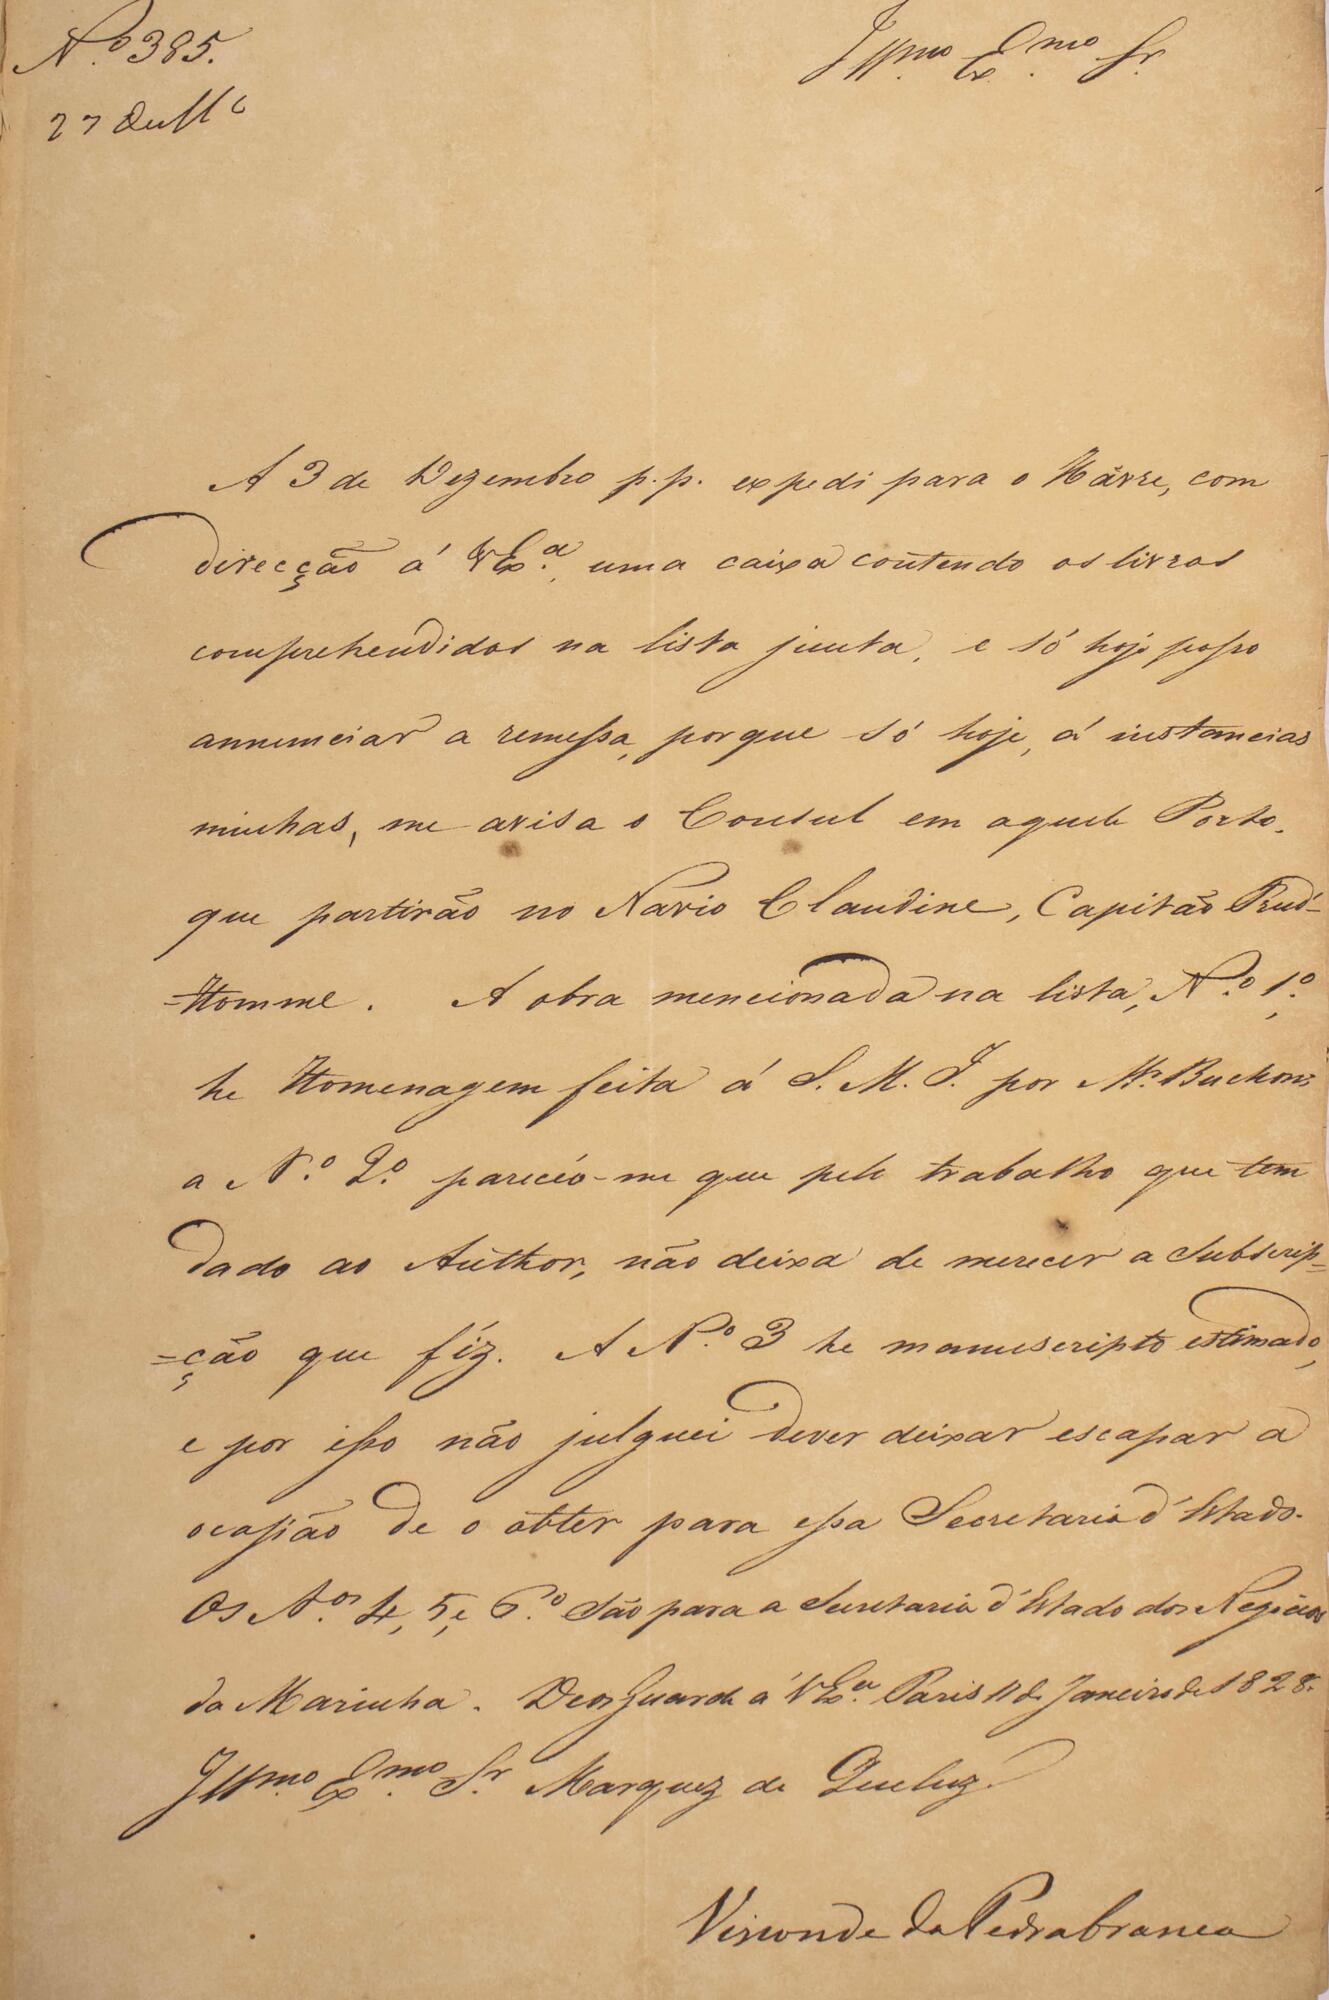 N.º 385.
Ill.mo Ex.mo Sr.
27
A 3 de Dezembro p.p. expedi para o Hávre, com
direcção á V Ex.ª, uma caixa contendo os livros
comprehendidos na lista junta, e só hoje posso
annunciar a remessa, porque só hoje, á instancias
minhas, me avisa o Consul em aquele Porto,
que partirão no Navio Claudine, Capitão Prud-
=Homme. A obra mencionada na lista, N.º 1.º,
he Homenagem feita á S. M. I. por Mr. Buchon;
a N.º 2.º pareceo-me que pelo trabalho que tem
dado ao Author, não deixa de merecer a subscrip=
=ção que fiz. A N.º 3 he manuscripto estimado,
e por isso não julguei dever deixar escapar a
ocasião de o obter para essa Secretaria d'Estado.
Os N.os 4, 5, e 6.º são para a Secretaria d'Estado dos Negocios
da Marinha. Deos Guarde á V Ex.ª Paris 11 de Janeiro de 1828.
Ill.mo Ex.mo Sr. Marquez de Queluz.
Visconde da Pedrabranca